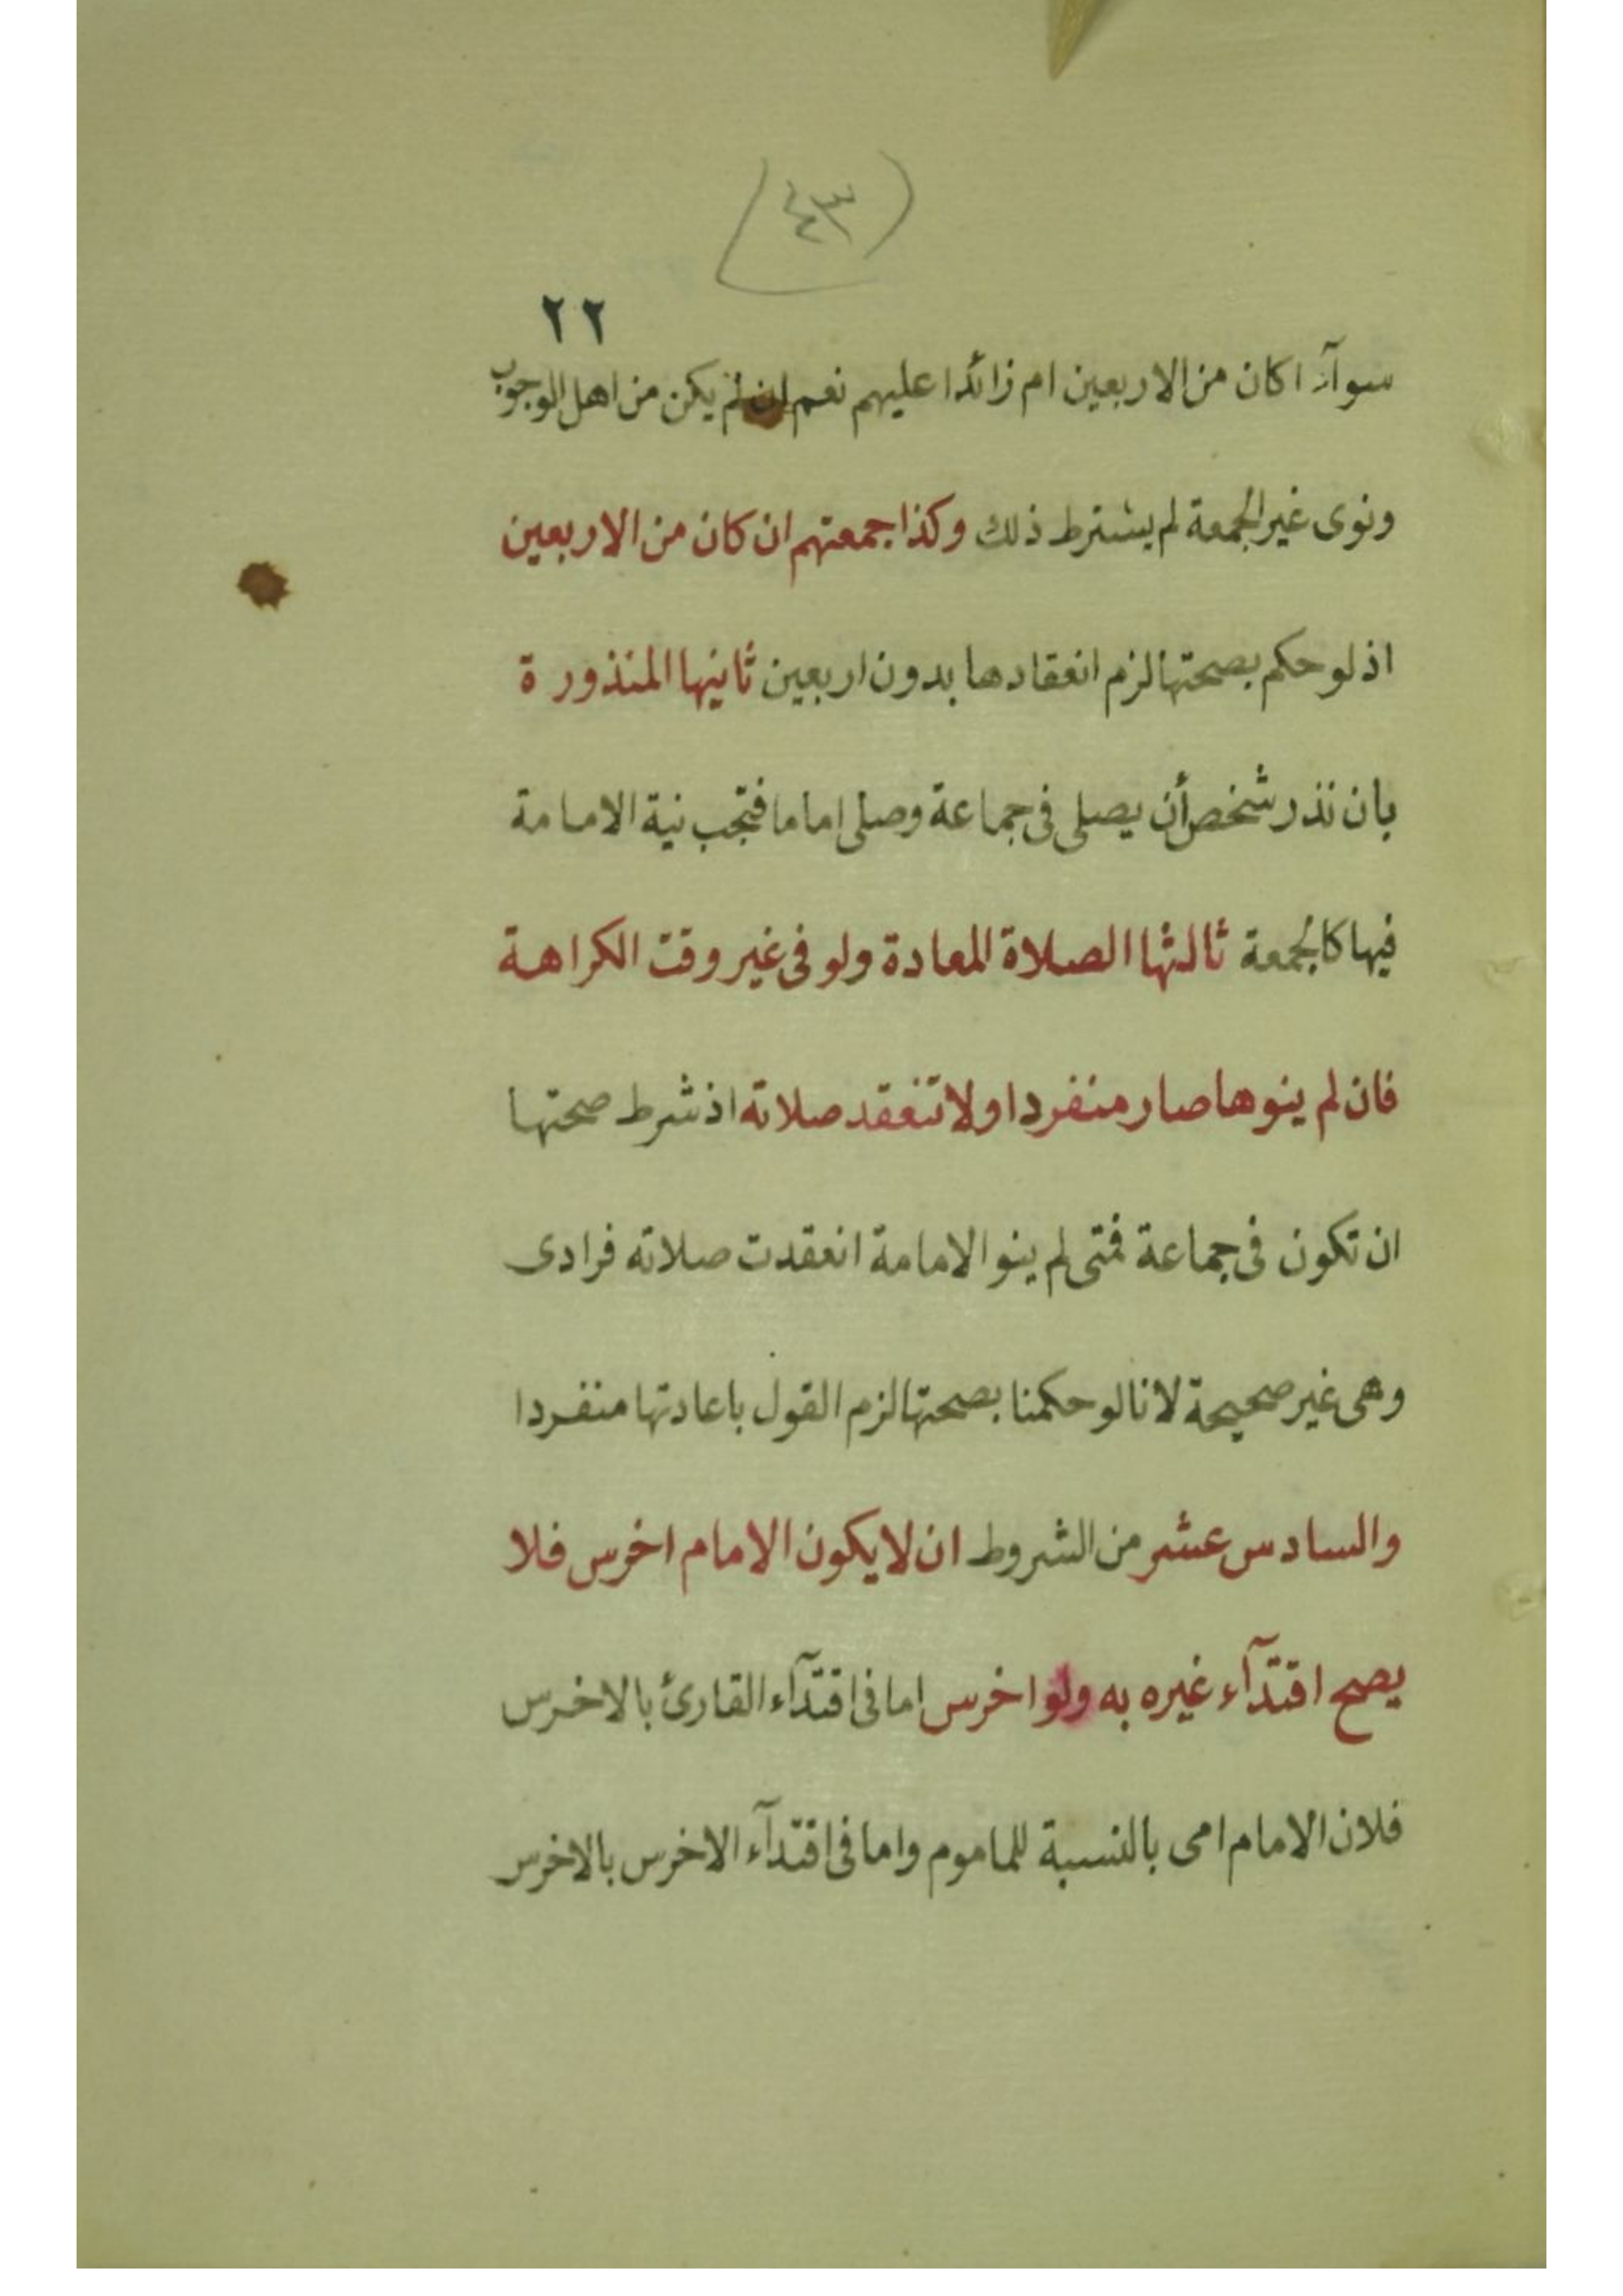 (٤٣)
٢٢
سوآء اكان من الاربعين ام زائدا عليهم نعم ان لم يكن من اهل الوجوب
ونوى غير الجمعة لم يشترط ذلك وكذا جمعتهم ان كان من الاربعين
اذ لو حكم بصحتها لزم انعقادها بدون اربعين ثانيها المنذورة
بان نذر شخص أن يصلى فى جماعة وصلى اماما فتجب نية الامامة
فيها كالجمعة ثالثها الصلاة المعادة ولو فى غير وقت الكراهة
فان لم ينوها صار منفردا ولا تنعقد صلاته اذ شرط صحتها
ان تكون فى جماعة فمتى لم ينو الامامة انعقدت صلاته فرادى
وهى غير صحيحة لانا لو حكمنا بصحتها لزم القول باعادتها منفردا
والسادس عشر من الشروط ان لا يكون الامام اخرس فلا
يصح اقتدآء غيره به ولو اخرس اما فى اقتدآء القارئ بالاخرس
فلان الامام امى بالنسبة للماموم واما فى اقتدآء الاخرس بالاخرس